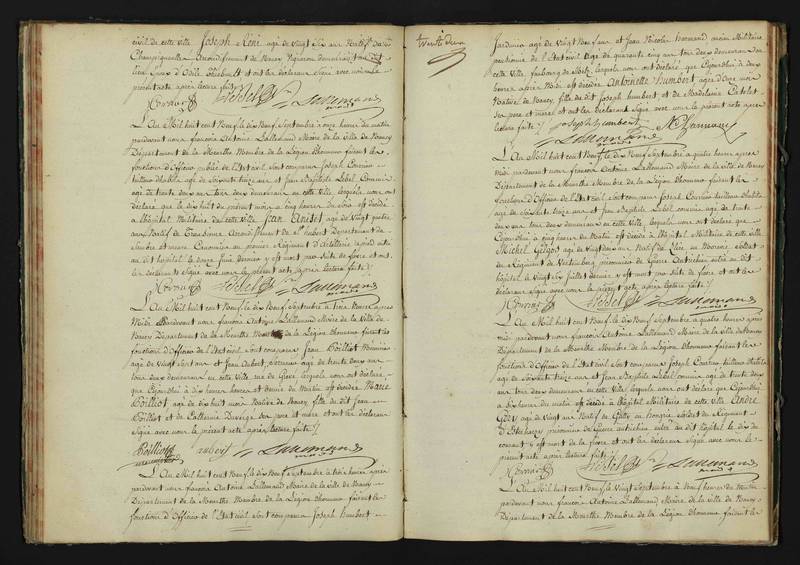 civil de cette ville Joseph René agé de vingt six ans natif de
Champigneulles arrondissement de Nancy Vigneron demeurant
et ont les déclarans signé avec nous le
présent acte après lecture faite
L'An Mil huit cent Neuf le dix Neuf Septembre à onze heures du matin
pardevant nous françois Antoine Lallemand Maire de la Ville de Nancy
Département de la Meurthe Membre de la Légion d'honneur faisant les
fonctions d'Officier public de l'Etat civil sont comparus Joseph Couvrion
tailleur d'habits agé de soixante treize ans et Jean Baptiste Lebel Commis
agé de trente deux ans tous deux demeurans en cette Ville, lesquels nous ont
déclaré que le dix huit du présent mois à cinq heures du soir est décédé
à l'hôpital Militaire de cette ville Jean agé de vingt quatre
ans Natif de arrondissement de Département de
Sambre et meuse Canonnier au premier Régiment d'Artillerie à pied entré
au dit hôpital le douze Juin dernier y est mort par suite de fievre et ont
les déclarans signé avec nous le présent acte après lecture faite
Lebel Lallemand
L'An Mil huit cent Neuf le dix Neuf Septembre à trois heures après
Midi Pardevant nous françois Antoine Lallemand Maire de la Ville de
Nancy Département de la Meurthe Membre de la Légion d'honneur faisant les
fonctions d'Officier de l'Etat civil sont comparus Jean Poilliot Menuisier
agé de vingt sept ans et Jean Aubert, agé de trente deux ans
tous deux demeurans en cette Ville rue de Grève, lesquels nous ont déclaré
que Cejourd'hui à dix heures et demie du Matin est décédée Marie
Poilliot agée de dix huit mois Native de Nancy, fille du dit Jean
Poilliot et de Catherine ses pere et mere et ont les déclarans
Signé avec nous le présent acte après lecture faite
Poilliot aubert Lallemand
L'An Mil huit cent Neuf le dix Neuf Septembre à trois heures après
pardevant nous françois Antoine Lallemand Maire de la Ville de Nancy
Département de la Meurthe Membre de la Légion d'honneur faisant les
fonctions d'Officier de l'Etat civil, sont comparus Joseph Humbert
Jardinier agé de vingt Neuf ans et Jean Nicolas ancien Militaire
pensionné de l'Etat agé de quarante cinq ans tous deux demeurans en
cette Ville, faubourg lesquels nous ont déclaré que Cejourd'hui à deux
heures après Midi est décédée Antoinette Humbert agée d'onze mois
Native de Nancy, fille du dit Joseph humbert et de Madeleine
ses pere et mere et ont les déclarans signé avec nous le présent acte après
lecture faite
joseph humbert
Lallemand
L'An Mil huit cent Neuf le dix Neuf Septembre à quatre heures après
Midi pardevant nous françois Antoine Lallemand Maire de la Ville de Nancy
Département de la Meurthe Membre de la Légion d'honneur faisant les
fonctions d'Officier de l'Etat civil sont comparus Joseph Couvrion tailleur d'habits
agé de soixante treize ans et Jean Baptiste Lebel commis agé de trente
deux ans tous deux demeurans en cette Ville, lesquels nous ont déclaré que
Cejourd'hui à cinq heures du Matin est décédé à l'hôpital Militaire de cette ville
Michel agé de vingt deux ans Natif de en Moravie soldat
au Régiment de prisonnier de Guerre Autrichien entré au dit
hôpital le vingt six Juillet dernier y est mort par suite de fievre et ont les
déclarans signé avec nous le présent acte, après lecture faite
Lebel Lallemand
L'An Mil huit cent Neuf, le dix Neuf Septembre à quatre heures après
midi pardevant nous françois Antoine Lallemand Maire de la Ville de Nancy
Département de la Meurthe Membre de la Légion d'honneur faisant les
fonctions d'Officier de l'Etat civil sont comparus Joseph Couvrion tailleur d'habits
agé de soixante treize ans et Jean Baptiste Lebel commis agé de trente deux
ans tous deux demeurans en cette Ville lesquels nous ont déclaré que Cejourd'hui
à dix heures du matin est décédé à l'hôpital Militaire de cette Ville André
agé de vingt ans Natif de en hongrie soldat du Régiment
d'Esterhazy prisonnier de Guerre autrichien entré au dit hôpital le dix du
courant y est mort de la fievre et ont les déclarans signé avec nous le
présent acte après lecture faite
Lebel Lallemand
L'An Mil huit cent Neuf le vingt Septembre à Neuf heures du matin
pardevant nous françois Antoine Lallemand Maire de la Ville de Nancy
Département de la Meurthe Membre de la Légion d'honneur faisant les